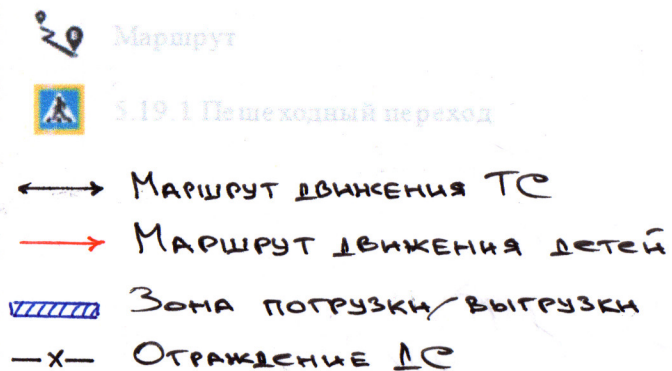 Маршрут
5.19.1 Пешеходный переход
Маршрут движения ТС
Маршрут движения детей
Зона погрузки/выгрузки
Ограждение ДС